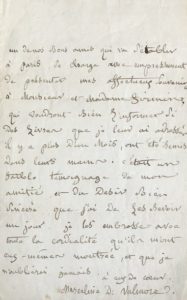 un de nos bons amis qui va s'établir
à Paris se charge avec empressement
de présenter mes affectueux souvenirs
à Monsieur et Madame
qui voudront bien s'informer si
des que je leur ai adressé
il y a plus d'un mois, ont été remis
dans leurs mains. c'était un
faible témoignage de mon
amitié et du désir bien
sincère que j'ai de les revoir
un jour. je les embrasse avec
toute la cordialité qu'ils m'ont
eux-mêmes montrée, et que je
n'oublierai jamais. de cœur.
Marceline D. Valmore